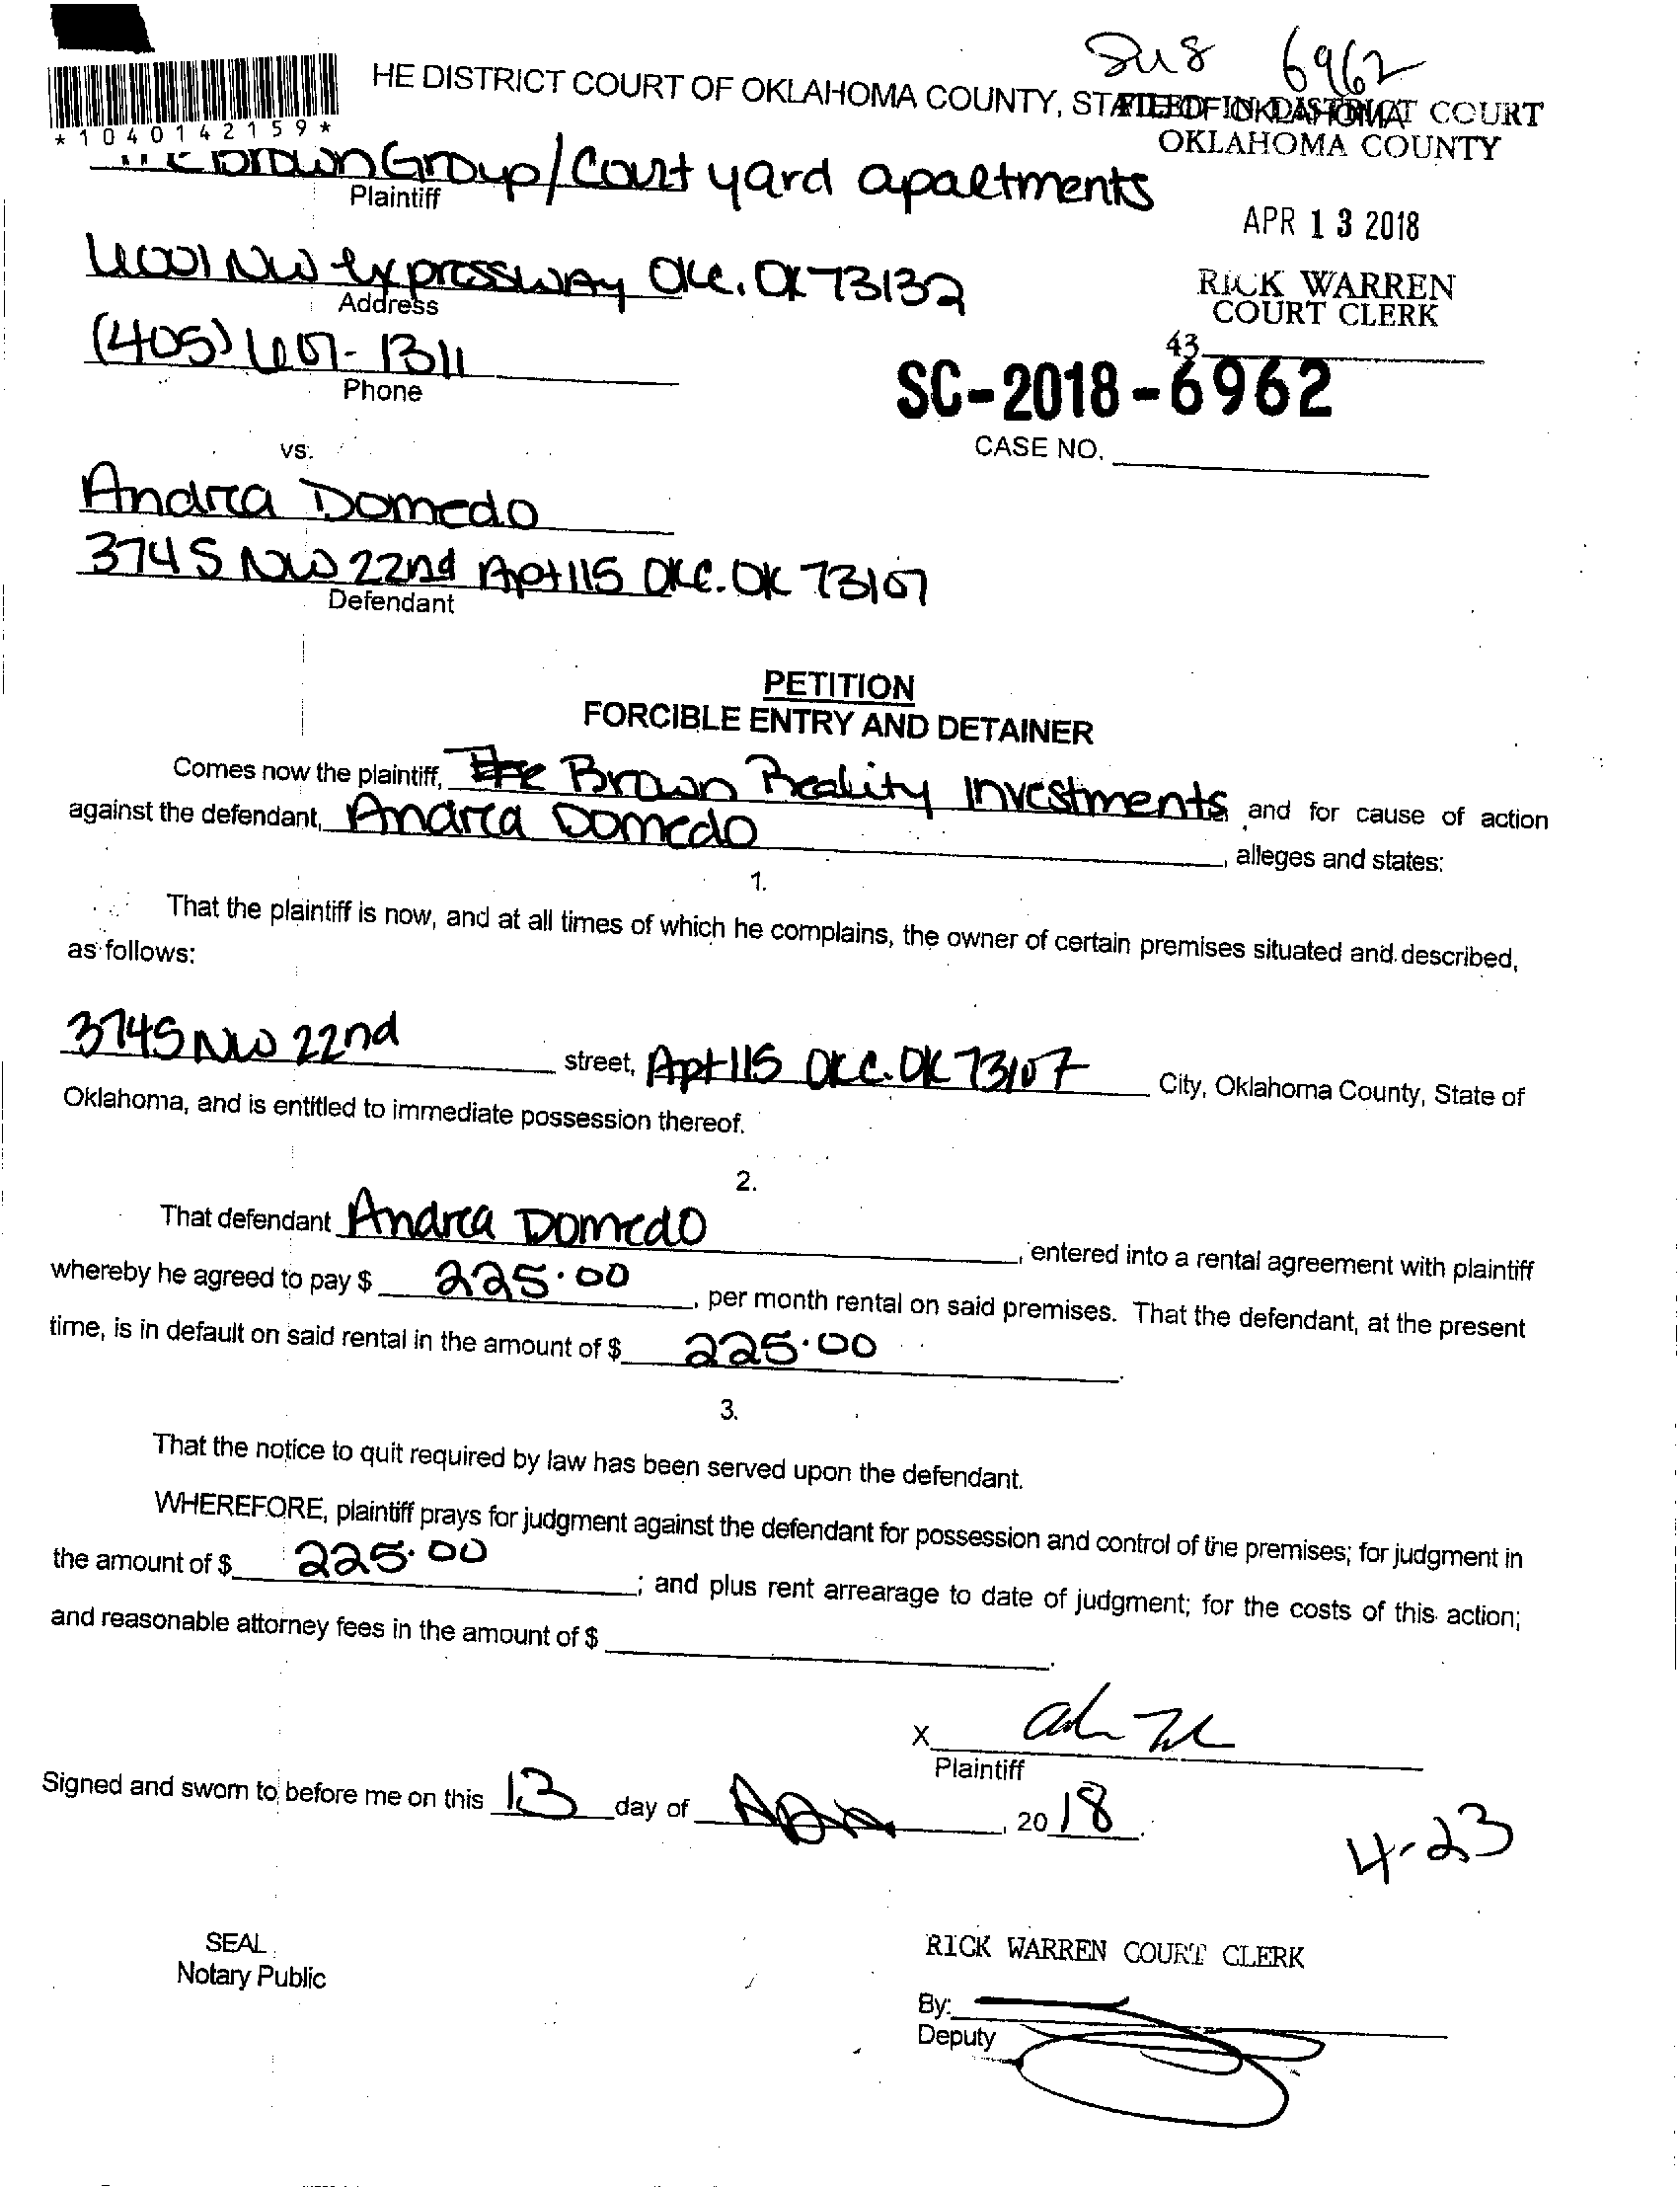 2us 6962
HE DISTRICT COURT OF OKLAHOMA COUNTY, STATE OF OKLAHOMA
FILED IN DISTRICT COURT
OKLAHOMA COUNTY
*1040142159*
Brown Group/Court yard apartments
Plaintiff
APR 13 2018
6001 NW Expressway OKC. OK 73132
Address
RICK WARREN
COURT CLERK
(405) 607-1311
Phone
43
SC-2018-6962
CASE NO.
vs.
Andrea Domedo
3745 NW 22nd Apt 115 OKC. OK 73107
Defendant
PETITION
FORCIBLE ENTRY AND DETAINER
Comes now the plaintiff, The Brown Reality Investments and for cause of action
against the defendant, Andrea Domedo, alleges and states:
1.
That the plaintiff is now, and at all times of which he complains, the owner of certain premises situated and described,
as follows:
3745 NW 22nd street, Apt 115 OKC. OK 73107 City, Oklahoma County, State of
Oklahoma, and is entitled to immediate possession thereof.
2.
That defendant Andrea Domedo, entered into a rental agreement with plaintiff
whereby he agreed to pay $ 225.00, per month rental on said premises. That the defendant, at the present
time, is in default on said rental in the amount of $ 225.00.
3.
That the notice to quit required by law has been served upon the defendant.
WHEREFORE, plaintiff prays for judgment against the defendant for possession and control of the premises; for judgment in
the amount of $ 225.00; and plus rent arrearage to date of judgment; for the costs of this action;
and reasonable attorney fees in the amount of $ .
X
Plaintiff
Signed and sworn to before me on this 13 day of , 2018.
4-23
SEAL
Notary Public
RICK WARREN COURT CLERK
By:
Deputy